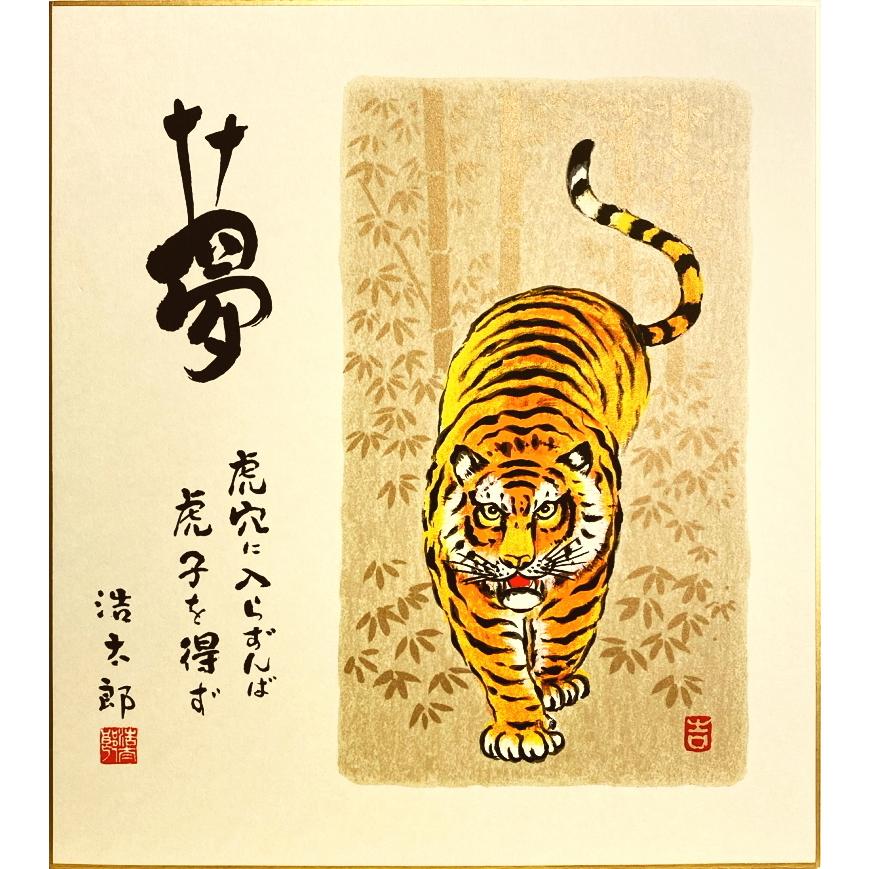 夢
虎穴に入らずんば
虎子を得ず
浩太郎
浩太郎
吉